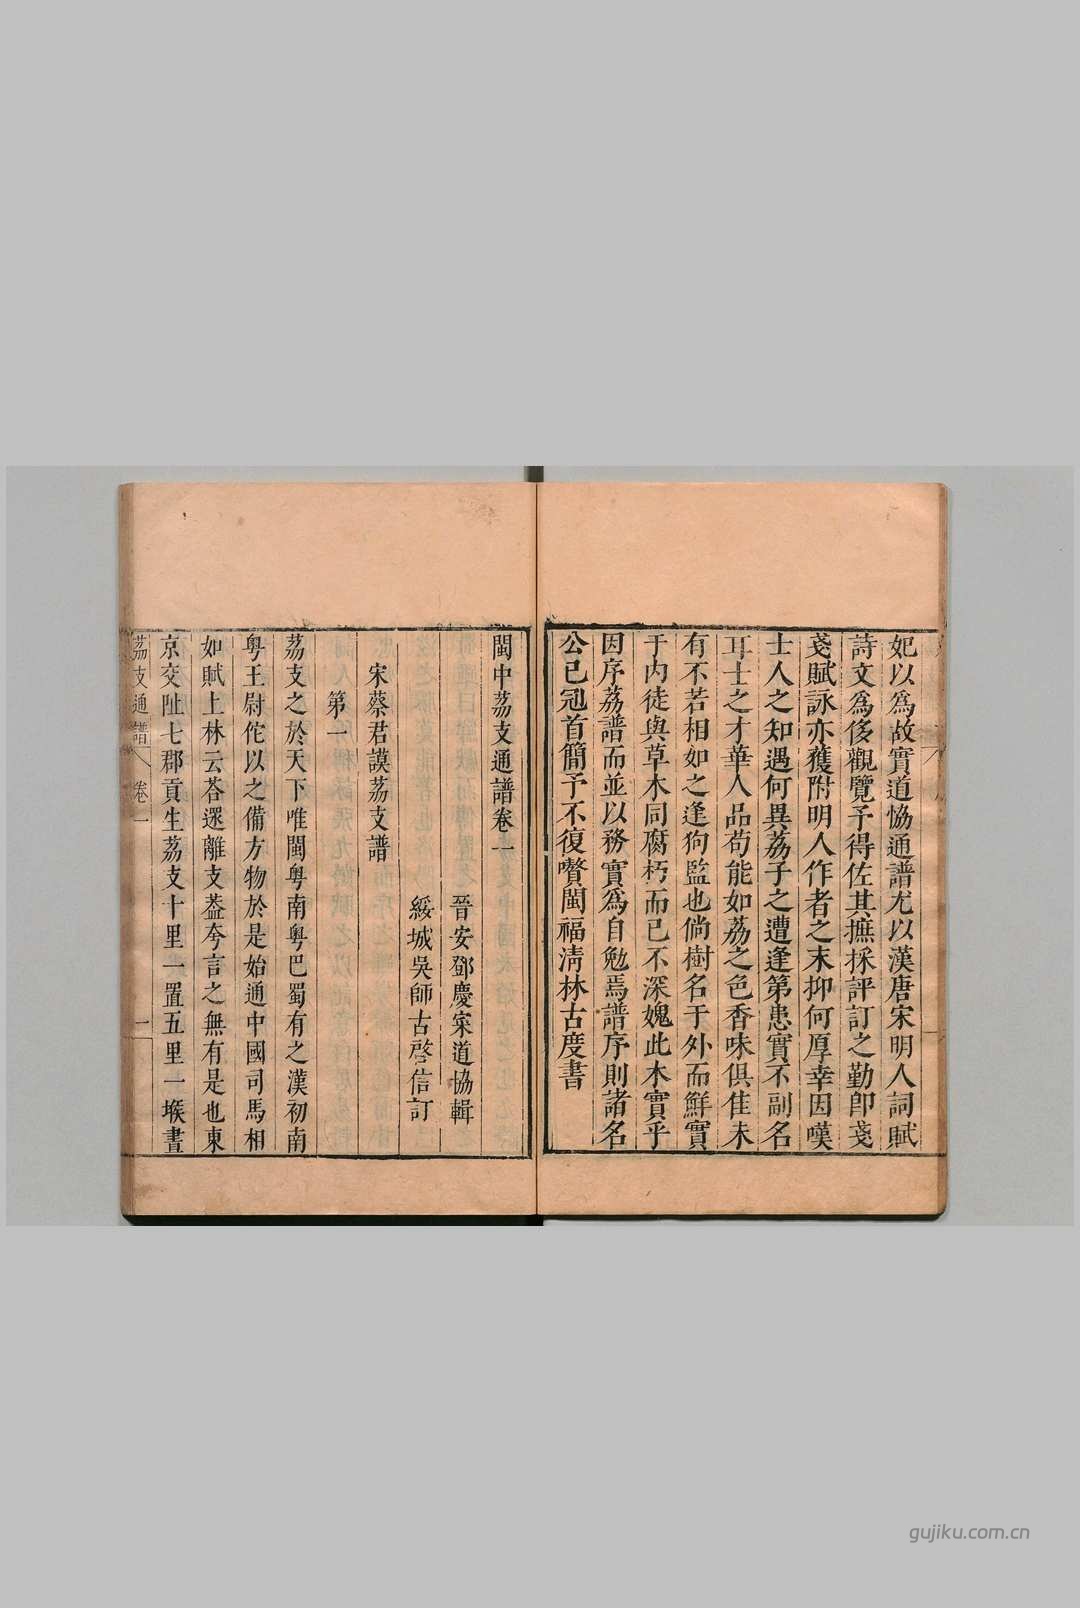 妃以爲故實道恊通譜尤以漢唐宋明人詞賦
詩文爲侈觀覽予得佐其摭採評訂之勤卽戔
戔賦詠亦獲附明人作者之末抑何厚幸因嘆
士人之知遇何異荔子之遭逢第患實不副名
耳士之才華人品苟能如荔之色香味俱佳未
有不若相如之逢狗監也倘樹名于外而鮮實
于内徒與草木同腐朽而已不深媿此木實乎
因序荔譜而並以務實爲自勉焉譜序則諸名
公已冠首簡予不復贅閩福清林古度書
閩中荔支通譜卷一
晉安鄧慶寀道協輯
綏城吳師古啓信訂
宋蔡君謨荔支譜
第一
荔支之於天下唯閩粤南粤巴蜀有之漢初南
粤王尉佗以之備方物於是始通中國司馬相
如賦上林云荅遝離支葢夸言之無有是也東
京交阯七郡貢生荔支十里一置五里一堠晝
荔支通譜 卷一 一
gujiku.com.cn